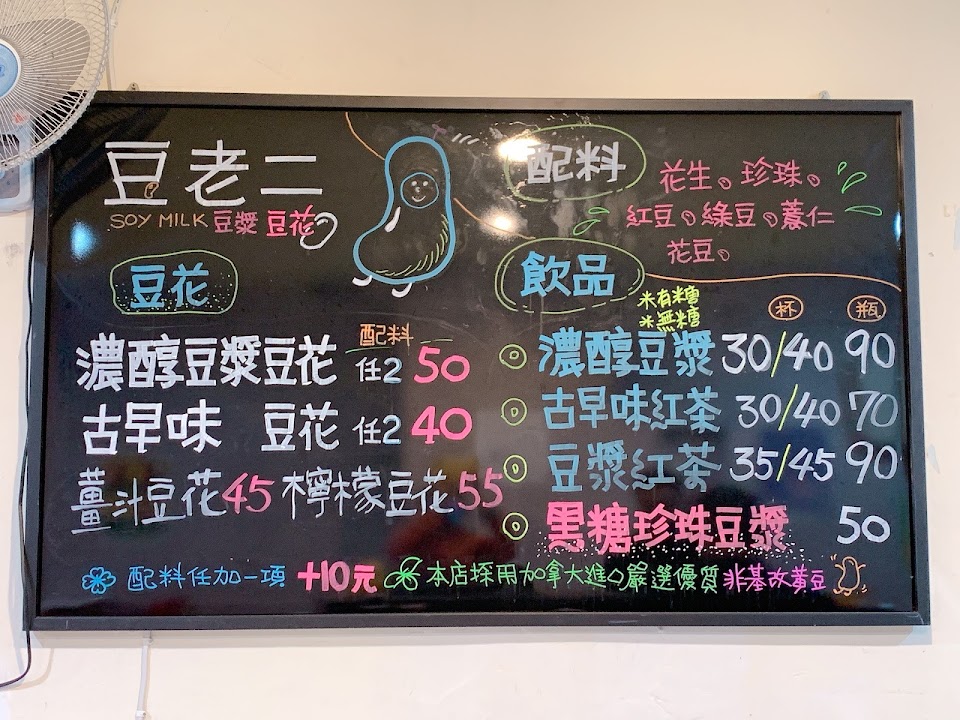 豆老二
SOY MILK 豆漿 豆花
豆花
配料
濃醇豆漿豆花 任2 50
古早味 豆花 任2 40
薑汁豆花45 檸檬豆花55
配料
花生。珍珠。
紅豆。綠豆。薏仁
花豆。
飲品
*有糖
*無糖
杯 瓶
濃醇豆漿 30/40 90
古早味紅茶 30/40 70
豆漿紅茶 35/45 90
黑糖珍珠豆漿 50
配料任加一項 +10元 本店採用加拿大進口嚴選優質非基改黃豆